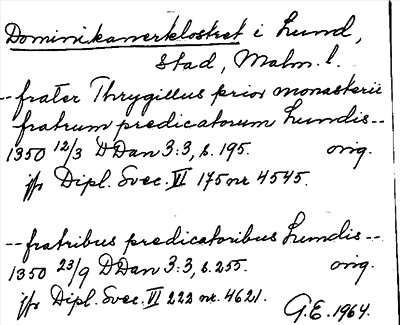 Dominikanerklostret i Lund,
Stad, Malm. l.
--frater Thrygillus prior monasterii
fratrum predicatorum Lundis--
1350 12/3 DDan 3:3, s. 195. orig.
jfr Dipl. Svec. VI 175 nr 4545.
--fratribus predicatoribus Lundis--
1350 23/9 DDan 3:3, s. 255. orig.
jfr Dipl. Svec. VI 222 nr. 4621.
G.E. 1964.